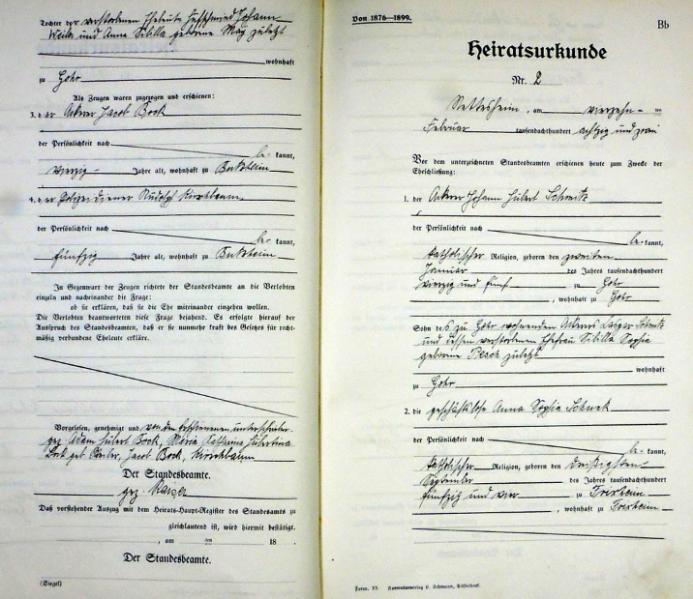 Tochter der verstorbenen Eheleute Hufschmied Johann
und Anna Sibilla geborene May zuletzt
wohnhaft
zu Gohr
Als Zeugen waren zugezogen und erschienen:
3. der Ackerer Jacob Bock
der Persönlichkeit nach
be- kannt,
vierzig Jahre alt, wohnhaft zu Butzheim
4. der Polizeidiener Rudolf Kirschbaum
der Persönlichkeit nach
be- kannt,
fünfzig Jahre alt, wohnhaft zu Butzheim
In Gegenwart der Zeugen richtete der Standesbeamte an die Verlobten
einzeln und nacheinander die Frage:
ob sie erklären, daß sie die Ehe miteinander eingehen wollen.
Die Verlobten beantworteten diese Frage bejahend. Es erfolgte hierauf der
Ausspruch des Standesbeamten, daß er sie nunmehr kraft des Gesetzes für recht-
mäßig verbundene Eheleute erkläre.
Vorgelesen, genehmigt und von den Erschienenen unterschrieben
gez Adam Hubert Bock, Maria Katharina Hubertina
Bock geb. Jacob Bock, Kirschbaum
Der Standesbeamte.
gez. Kaiser
Daß vorstehender Auszug mit dem Heirats-Haupt-Register des Standesamts zu
gleichlautend ist, wird hiermit bestätigt.
, am ten 18
Der Standesbeamte.
(Siegel)
Von 1876—1899.
Bb
Heiratsurkunde
Nr. 2
Nettesheim, am vierzehn- ten
Februar tausendachthundert achtzig und zwei
Vor dem unterzeichneten Standesbeamten erschienen heute zum Zwecke der
Eheschließung:
1. der Ackerer Johann Hubert Schmitz
der Persönlichkeit nach
be- kannt,
katholischer Religion, geboren den zweiten
Januar des Jahres tausendachthundert
vierzig und fünf zu Gohr
, wohnhaft zu Gohr
Sohn des zu Gohr wohnenden Ackerers Caspar Schmitz
und dessen verstorbenen Ehefrau Sibilla Sophia
geborene Pesch zuletzt
wohnhaft
zu Gohr
2. die geschäftslose Anna Sophia
der Persönlichkeit nach
be- kannt,
katholischer Religion, geboren den dreißigsten
September des Jahres tausendachthundert
fünfzig und vier zu Frixheim
, wohnhaft zu Frixheim